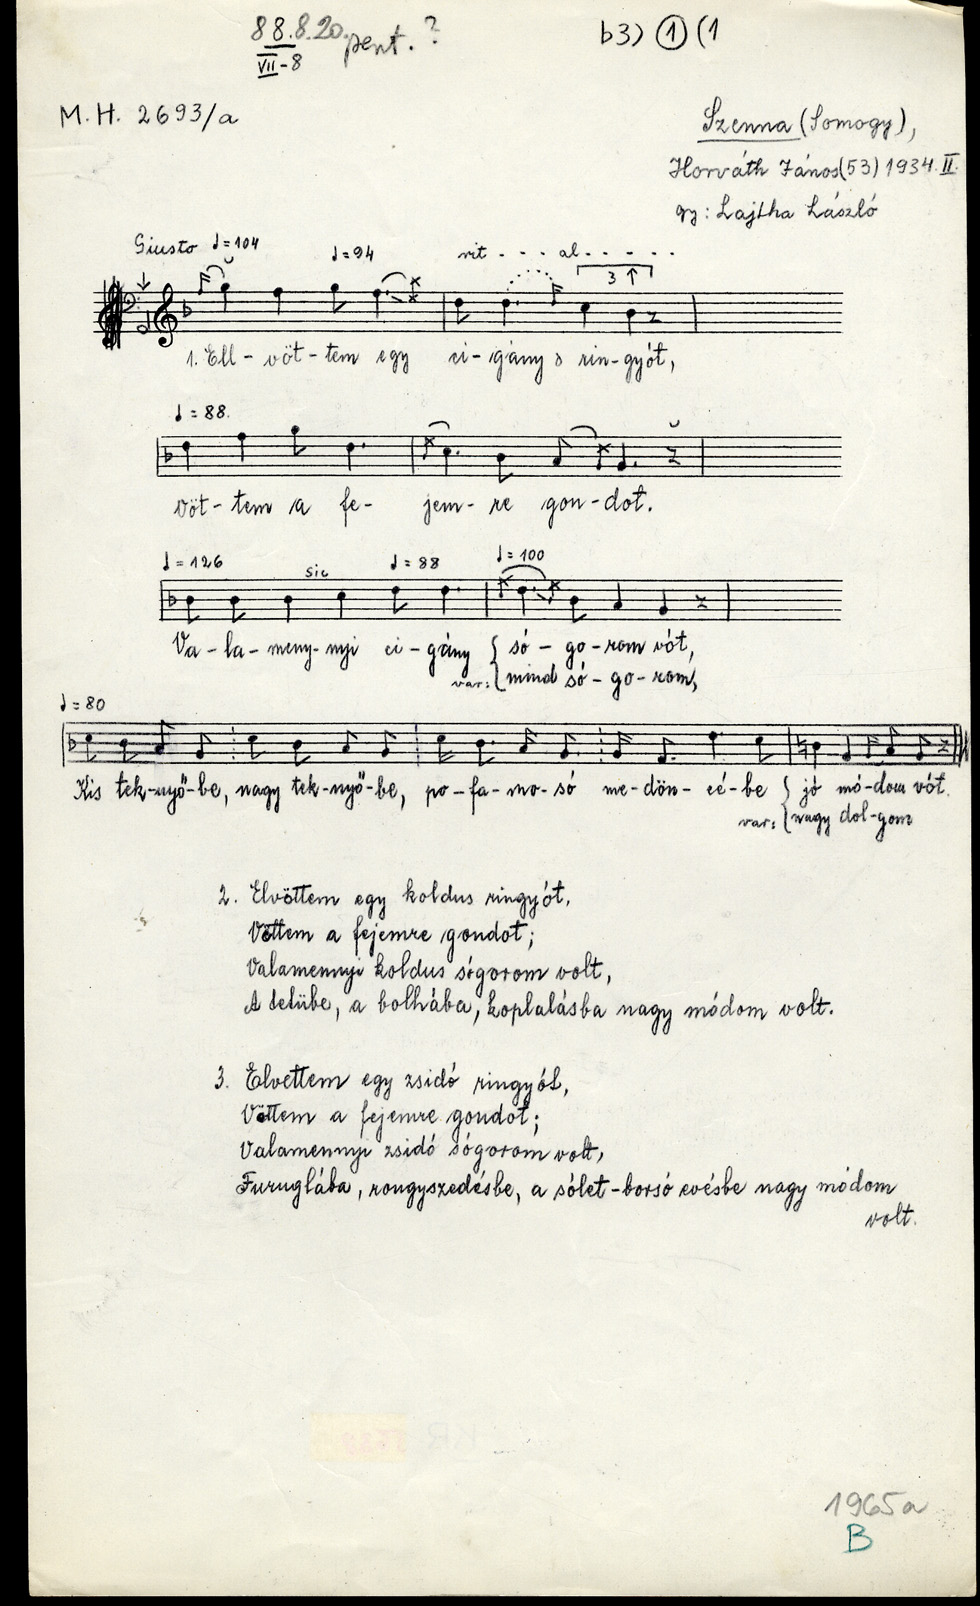 88.8.20. pent. ?
VII-8
b3) 1 (1
M.H. 2693/a
Szenna (Somogy),
Horváth János (53) 1934. II.
gy: Lajtha László
Giusto ♩=104 ♩=94 rit - - - al - - - -
3
1. Ell-vöt-tem egy ci-gány s rin-gyót,
♩=88.
vöt-tem a fe-jem-re gon-dot.
♩=126 sic ♩=88 ♩=100
Va-la-meny-nyi ci-gány só-go-rom vót,
var: mind só-go-rom,
♩=80
Kis tek-nyő-be, nagy tek-nyő-be, po-fa-mo-só me-dön-cé-be jó mó-dom vót.
var: nagy dol-gom
2. Elvöttem egy koldus ringyót,
Vöttem a fejemre gondot;
Valamennyi koldus sógorom volt,
A tetübe, a bolhába, koplalásba nagy módom volt.
3. Elvettem egy zsidó ringyót,
Vöttem a fejemre gondot;
Valamennyi zsidó sógorom volt,
Furuglába, rongyszedésbe, a sólet-borsó evésbe nagy módom
volt.
1965a
B